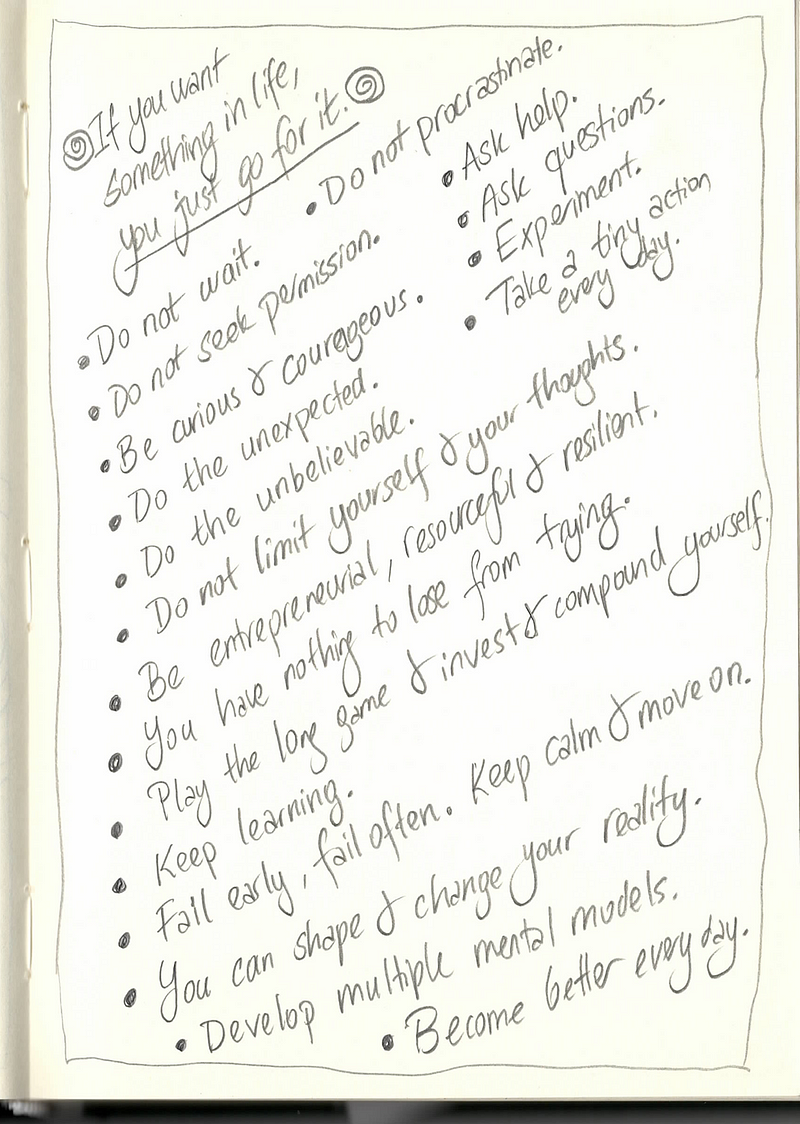 If you want
something in life,
you just go for it.
• Do not procrastinate.
• Ask help.
• Ask questions.
• Experiment.
• Take a tiny action
every day.
• Do not wait.
• Do not seek permission.
• Be curious & courageous.
• Do the unexpected.
• Do the unbelievable.
• Do not limit yourself & your thoughts.
• Be entrepreneurial, resourceful & resilient.
• You have nothing to lose from trying.
• Play the long game & invest & compound yourself.
• Keep learning.
• Fail early, fail often. Keep calm & move on.
• You can shape & change your reality.
• Develop multiple mental models.
• Become better every day.